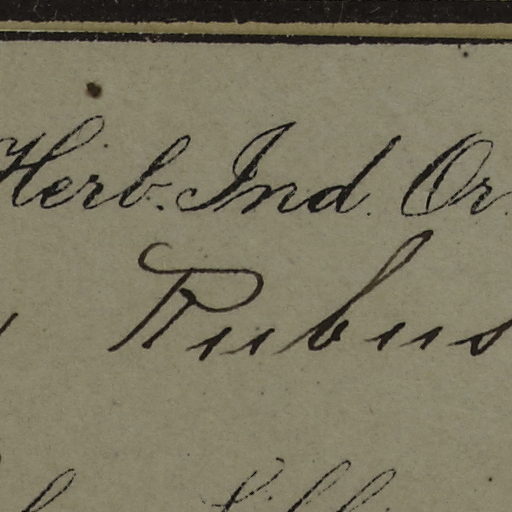 Herb. Ind. Or.
Rubus